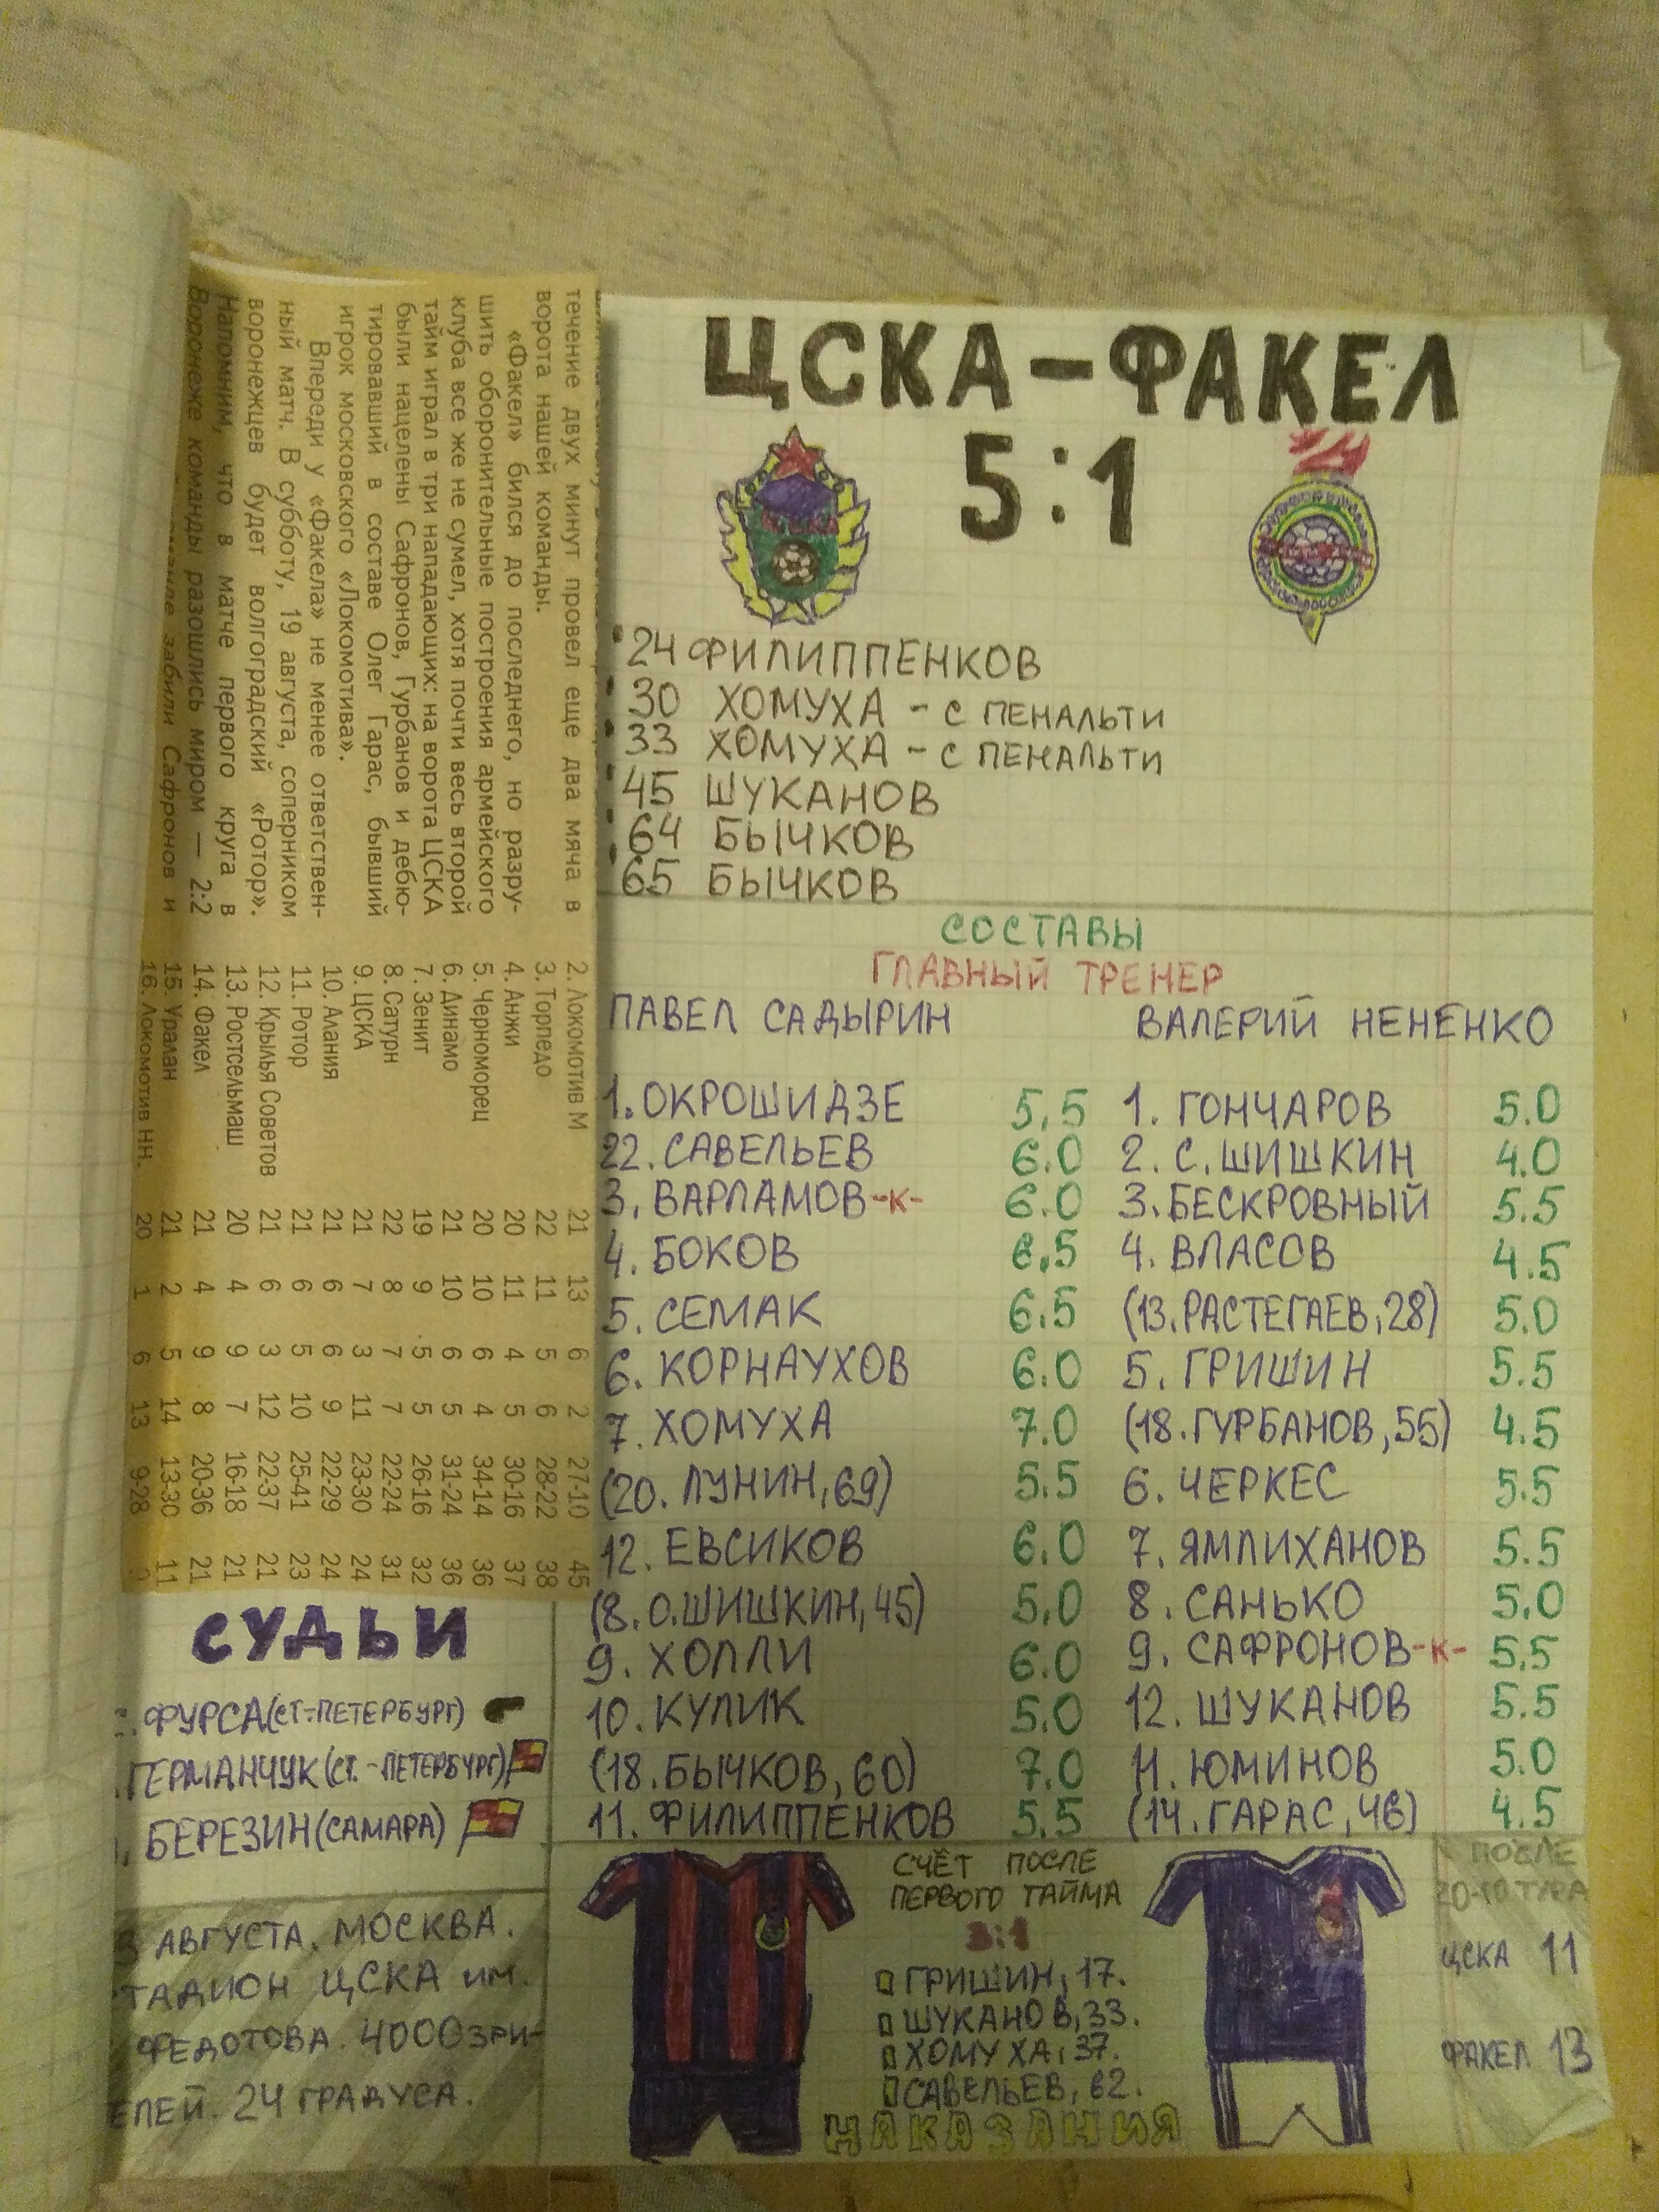 ЦСКА-ФАКЕЛ
5:1
24 ФИЛИППЕНКОВ
30 ХОМУХА - С ПЕНАЛЬТИ
33 ХОМУХА - С ПЕНАЛЬТИ
45 ШУКАНОВ
64 БЫЧКОВ
65 БЫЧКОВ
СОСТАВЫ
ГЛАВНЫЙ ТРЕНЕР
ПАВЕЛ САДЫРИН ВАЛЕРИЙ НЕНЕНКО
1. ОКРОШИДЗЕ 5,5 1. ГОНЧАРОВ 5.0
22. САВЕЛЬЕВ 6.0 2. С. ШИШКИН 4.0
3. ВАРЛАМОВ -К- 6.0 3. БЕСКРОВНЫЙ 5.5
4. БОКОВ 6,5 4. ВЛАСОВ 4.5
5. СЕМАК 6.5 (13. РАСТЕГАЕВ, 28) 5.0
6. КОРНАУХОВ 6.0 5. ГРИШИН 5.5
7. ХОМУХА 7.0 (18. ГУРБАНОВ, 55) 4.5
(20. ЛУНИН, 69) 5.5 6. ЧЕРКЕС 5.5
12. ЕВСИКОВ 6.0 7. ЯМЛИХАНОВ 5.5
(8. О. ШИШКИН, 45) 5,0 8. САНЬКО 5.0
9. ХОЛЛИ 6.0 9. САФРОНОВ -К- 5,5
10. КУЛИК 5.0 12. ШУКАНОВ 5.5
(18. БЫЧКОВ, 60) 7.0 11. ЮМИНОВ 5.0
11. ФИЛИППЕНКОВ 5.5 (14. ГАРАС, 46) 4.5
СЧЁТ ПОСЛЕ
ПЕРВОГО ТАЙМА
3:1
ГРИШИН, 17.
ШУКАНОВ, 33.
ХОМУХА, 37.
САВЕЛЬЕВ, 62.
НАКАЗАНИЯ
ПОСЛЕ
20-ГО ТУРА
ЦСКА 11
ФАКЕЛ 13
СУДЬИ
ФУРСА (СТ.-ПЕТЕРБУРГ)
ГЕРМАНЧУК (СТ.-ПЕТЕРБУРГ)
БЕРЕЗИН (САМАРА)
АВГУСТА. МОСКВА.
ТАДИОН ЦСКА ИМ.
ФЕДОТОВА. 4000 ЗРИ-
ЕЛЕЙ. 24 ГРАДУСА.
течение двух минут провел еще два мяча в
ворота нашей команды.
«Факел» бился до последнего, но разру-
шить оборонительные построения армейского
клуба все же не сумел, хотя почти весь второй
тайм играл в три нападающих: на ворота ЦСКА
были нацелены Сафронов, Гурбанов и дебю-
тировавший в составе Олег Гарас, бывший
игрок московского «Локомотива».
Впереди у «Факела» не менее ответствен-
ный матч. В субботу, 19 августа, соперником
воронежцев будет волгоградский «Ротор».
Напомним, что в матче первого круга в
Воронеже команды разошлись миром — 2:2
забили Сафронов и
2. Локомотив М 21 13 6 2 27-10 45
3. Торпедо 22 11 5 6 28-22 38
4. Анжи 20 11 4 5 30-16 37
5. Черноморец 20 10 6 4 34-14 36
6. Динамо 21 10 6 5 31-24 36
7. Зенит 19 9 5 5 26-16 32
8. Сатурн 22 8 7 7 22-24 31
9. ЦСКА 21 7 3 11 23-30 24
10. Алания 21 6 6 9 22-29 24
11. Ротор 21 6 5 10 25-41 23
12. Крылья Советов 21 6 3 12 22-37 21
13. Ростсельмаш 20 4 9 7 16-18 21
14. Факел 21 4 9 8 20-36 21
15. Уралан 21 2 5 14 13-30 11
16. Локомотив НН. 20 1 6 13 9-28 9